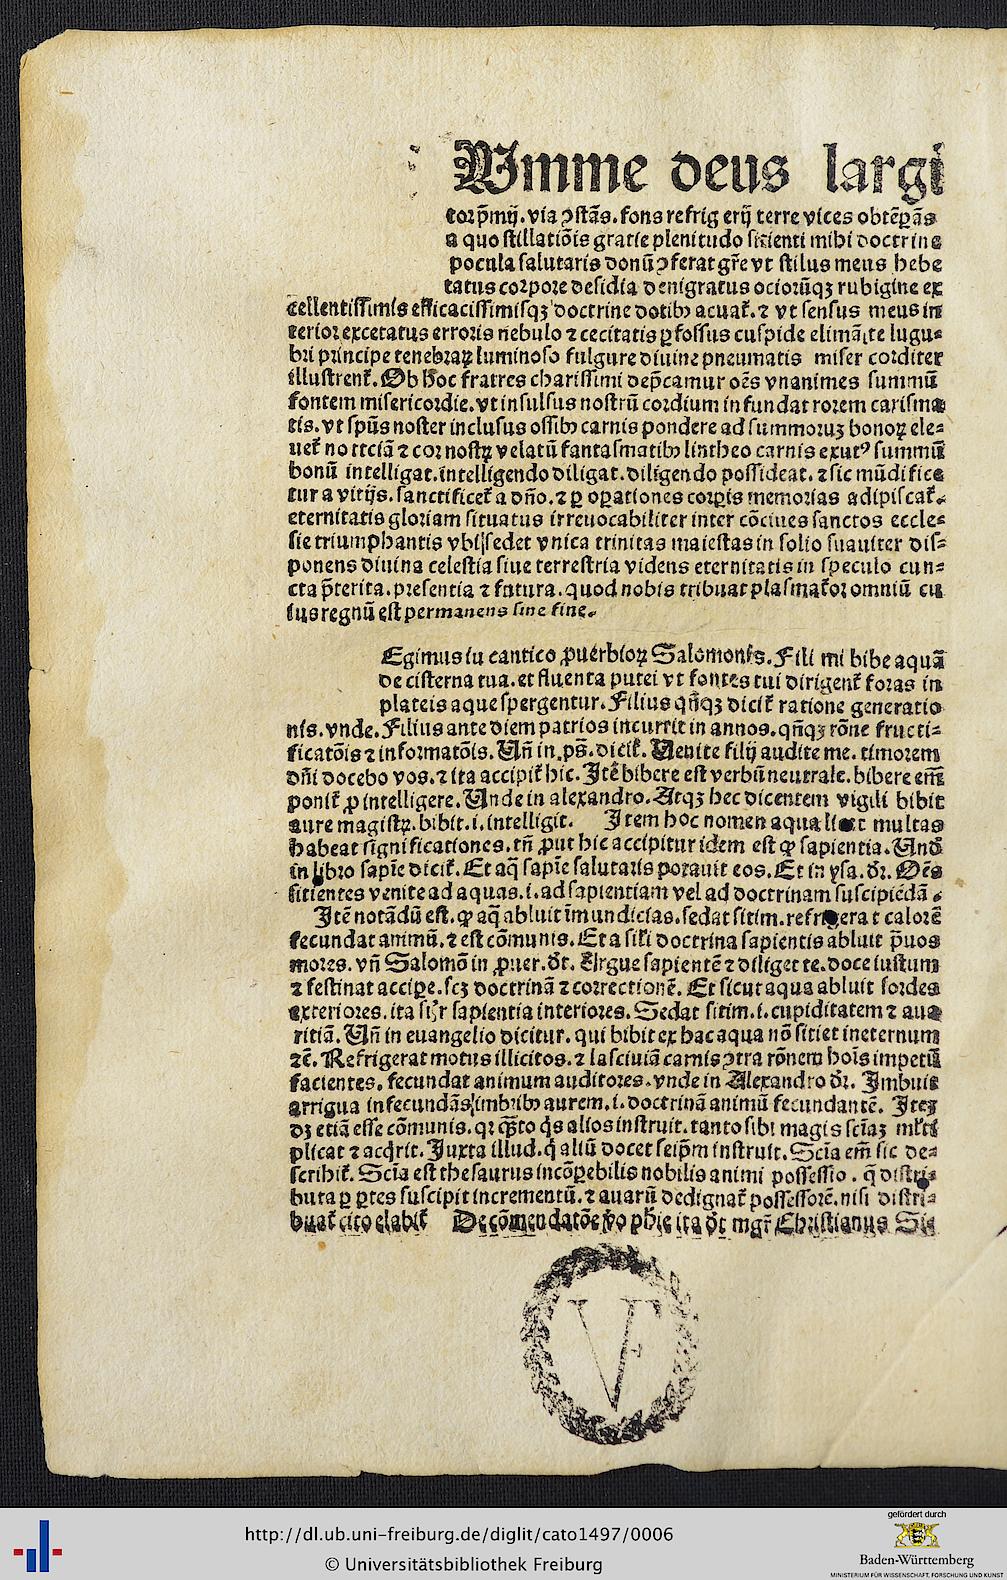 Umme deus largi
tor p̄mij. via ꝯstās. fons refrig erij terre vices obtēꝑās
a quo stillatiōis gratie plenitudo sitienti mihi doctrine
pocula salutaris donū ꝯferat gr̄e vt stilus meus hebe
tatus corpore desidia denigratus ociorūqꝫ rubigine ex
cellentissimis efficacissimisqꝫ doctrine dotibꝰ acuat᷑. ⁊ vt sensus meus in
terior excetatus erroris nebulo ⁊ cecitatis ꝑfossus cuspide elimāte lugu-
bri principe tenebraꝝ luminoso fulgure diuine pneumatis miser corditer
illustrent᷑. Ob hoc fratres charissimi dep̄camur oēs vnanimes summū
fontem misericordie. vt insulsus nostrū cordium infundat rorem carisma
tis. vt spūs noster inclusus ossibꝰ carnis pondere ad summoruꝫ bonoꝝ ele-
uet᷑ notciā ⁊ cor nostꝝ velatū fantasmatibꝰ lintheo carnis exutꝰ summū
bonū intelligat. intelligendo diligat. diligendo possideat. ⁊ sic mūdifice
tur a vitijs. sanctificet᷑ a dn̄o. ⁊ ꝑ oꝑationes corꝑis memorias adipiscat᷑.
eternitatis gloriam situatus irreuocabiliter inter cōciues sanctos eccle-
sie triumphantis vbi sedet vnica trinitas maiestas in solio suauiter dis-
ponens diuina celestia siue terrestria videns eternitatis in speculo cun-
cta p̄terita. presentia ⁊ futura. quod nobis tribuat plasmat᷑or omniū cu
ius regnū est permanens sine fine.
Egimus in cantico ꝓuerbioꝝ Salomonis. Fili mi bibe aquā
de cisterna tua. et fluenta putei vt fontes tui dirigent᷑ foras in
plateis aque spergentur. Filius qn̄qꝫ dicit᷑ ratione generatio
nis. vnde. Filius ante diem patrios incurrit in annos. qn̄qꝫ rōne fructi-
ficatōis ⁊ informatōis. Vn̄ in ps̄. dicit᷑. Uenite filij audite me. timorem
dn̄i docebo vos. ⁊ ita accipit᷑ hic. Itē bibere est verbū neutrale. bibere em̄
ponit᷑ ꝓ intelligere. Unde in alexandro. Atqꝫ hec dicentem vigili bibit
aure magistꝝ. bibit. i. intelligit. Item hoc nomen aqua licet multas
habeat significationes. tn̄ ꝓut hic accipitur idem est qꝙ sapientia. Und̄
in libro sapīe dicit᷑. Et aq̄ sapīe salutaris potauit eos. Et in ysa. dr̄. Oēs
sitientes venite ad aquas. i. ad sapientiam vel ad doctrinam suscipiēdā.
Itē notādū est. qꝙ aq̄ abluit īmundicias. sedat sitim. refrigerat calorē
fecundat animū. ⁊ est cōmunis. Et a sil̄i doctrina sapientis abluit p̄uos
mores. vn̄ Salomō in ꝓuer. dt̄. Argue sapientē ⁊ diliget te. doce iustum
⁊ festinat accipe. scꝫ doctrinā ⁊ correctionē. Et sicut aqua abluit sordes
exteriores. ita sil̄r sapientia interiores. Sedat sitim. i. cupiditatem ⁊ aua
ritiā. Vn̄ in euangelio dicitur. qui bibit ex hac aqua nō sitiet ineternum
⁊c̄. Refrigerat motus illicitos. ⁊ lasciuiā carnis ꝯtra rōnem hoīs impetū
facientes. fecundat animum auditores. vnde in Alexandro dr̄. Imbuit
arrigua infecundās imbribꝰ aurem. i. doctrinā animū fecundantē. Iteꝫ
dꝫ etiā esse cōmunis. qꝛ qn̄to q̄s alios instruit. tanto sibi magis sciaꝫ ml̄ti
plicat ⁊ acq̄rit. Iuxta illud. q̄ aliū docet seip̄m instruit. Scīa em̄ sic de-
scribit᷑. Scīa est thesaurus incōꝑebilis nobilis animi possessio. q̄ distri-
buta ꝑ ꝑtes suscipit incrementū. ⁊ auarū dedignat᷑ possessorē. nisi distri-
buat᷑ cito elabit᷑ De cōmendatōe v̄o ph̄ie ita dt̄ mgr̄ Christianus Sic
VF
http://dl.ub.uni-freiburg.de/diglit/cato1497/0006
© Universitätsbibliothek Freiburg
gefördert durch
Baden-Württemberg
MINISTERIUM FÜR WISSENSCHAFT, FORSCHUNG UND KUNST